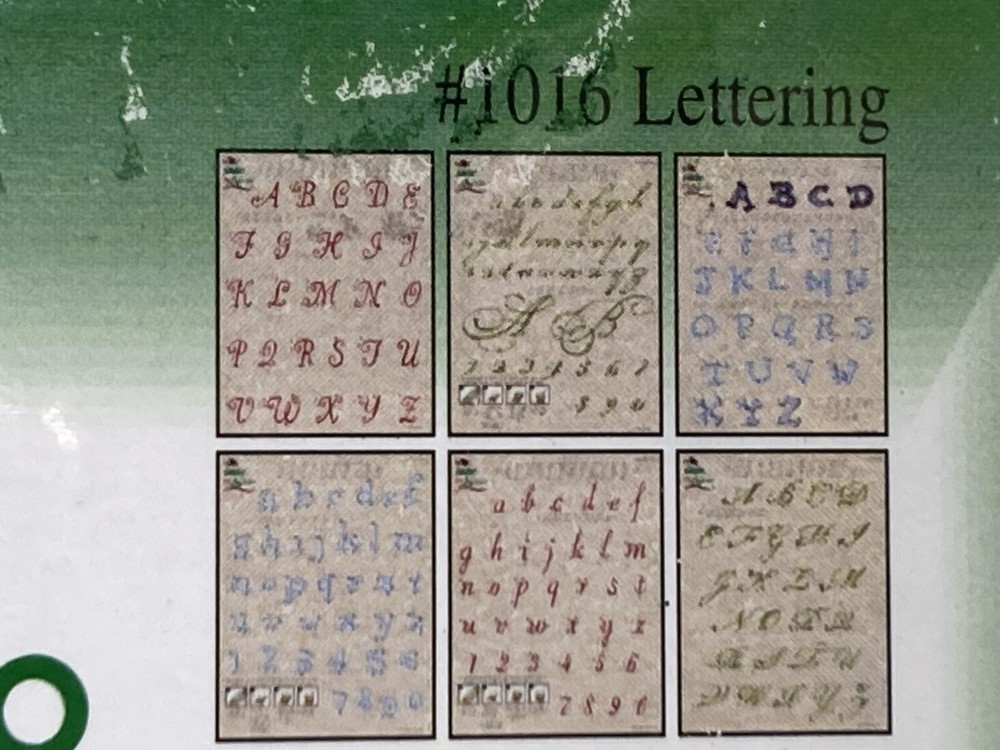 #1016 Lettering
A B C D E
F G H I J
K L M N O
P Q R S T U
V W X Y Z
a b c d e f g h
A B
1 2 3 4 5 6 7
8 9 0
A B C D
E F G H I
J K L M N
O P Q R S
T U V W
X Y Z
a b c d e f
g h i j k l m
n o p q r s t
u v w x y z
1 2 3 4 5 6
7 8 9 0
a b c d e f
g h i j k l m
n o p q r s t
u v w x y z
1 2 3 4 5 6
7 8 9 0
A B C D
E F G H I
J K L M
N O P Q
R S T U
V W X Y Z